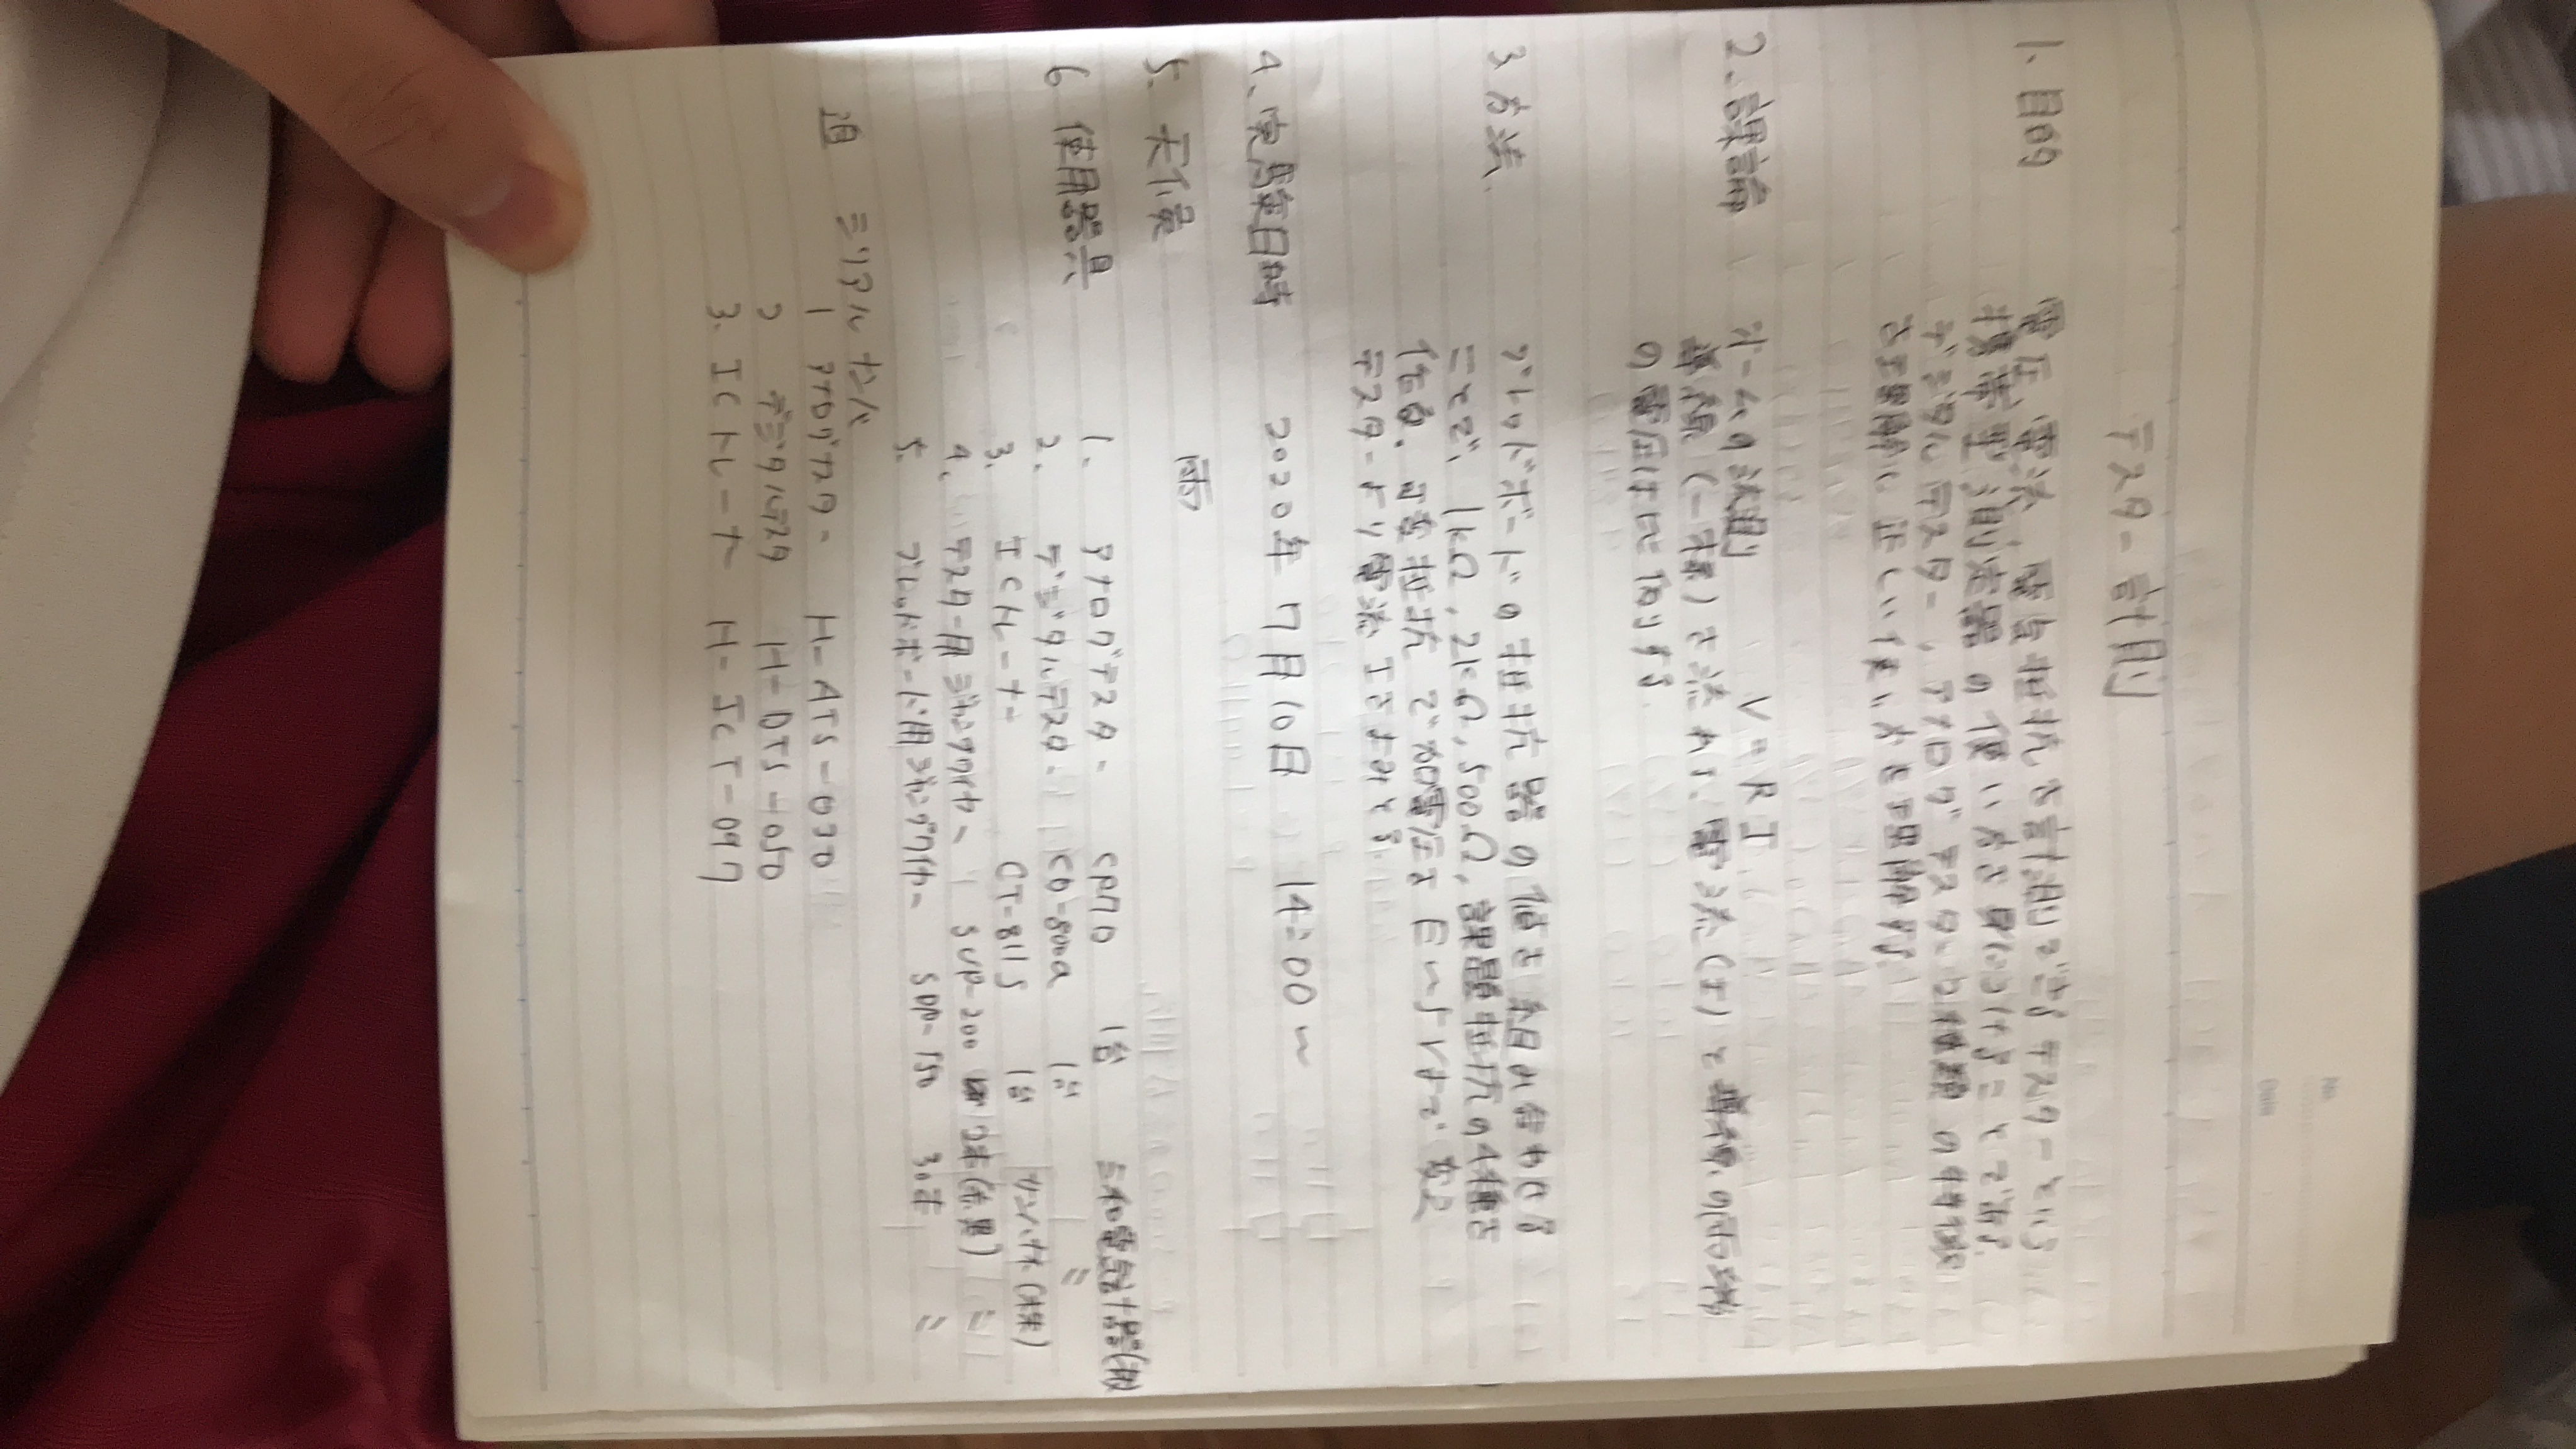 テスター計測
1. 目的
電圧、電流、電気抵抗を計測できるテスターという
携帯型測定器の使い方を身につけることである。
デジタルテスター、アナログテスターの2種類の
を理解し正しい使い方を理解する。
2. 理論
オームの法則 V=RI
導線(一様)を流れる電流(I)と導線の両端
の電圧は比例する
3 方法.
ブレッドボードの抵抗器の値を組み合わせる
ことで、1kΩ, 2kΩ, 500Ω, 課題抵抗の4種を
作る。可変抵抗で電圧を 1~5Vまで変え
テスターより電流Iをはかる。
4、実験日時 2020年 7月10日 14:00~
5. 天候 雨
6 使用器具
1. アナログテスター CP-7D 1台 三和電気計器(株)
2. デジタルテスター CD-800a 1台 〃
3. ICトレーナー CT-811S 1台 サンハヤト(株)
4. テスター用ジャンプワイヤー SUP-200
5. ブレッドボード用ジャンプワイヤー SDP-150 30本 〃
追 シリアルナンバ
1 アナログテスター H-ATS-030
2 デジタルテスタ H-DTS-050
3. ICトレーナ H-ICT-097